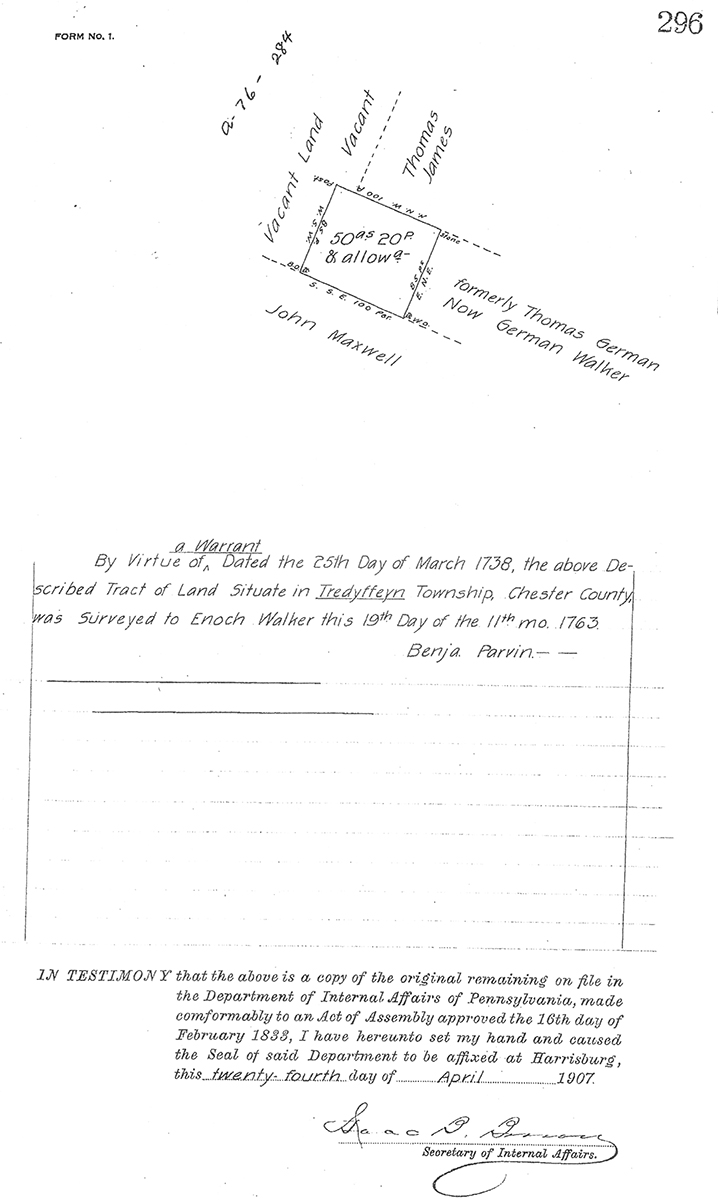 296
FORM No. 1.
a-76-284
Vacant Land
Vacant
Thomas
James
Post
N. N. W. 100 P.
Stone
W. S. W.
85 P.
50 as 20 P.
& allow a-
85 Ps
E. N. E.
B.O.
S. S. E. 100 Per.
B.W.O.
John Maxwell
formerly Thomas German
Now German Walker
a Warrant
By Virtue of ‸ Dated the 25th Day of March 1738, the above De-
scribed Tract of Land Situate in Tredyffeyn Township, Chester County,
was Surveyed to Enoch Walker this 19th Day of the 11th mo. 1763.
Benja. Parvin. — —
IN TESTIMONY that the above is a copy of the original remaining on file in
the Department of Internal Affairs of Pennsylvania, made
comformably to an Act of Assembly approved the 16th day of
February 1833, I have hereunto set my hand and caused
the Seal of said Department to be affixed at Harrisburg,
this twenty-fourth day of April 1907.
Isaac B. Brown
Secretary of Internal Affairs.